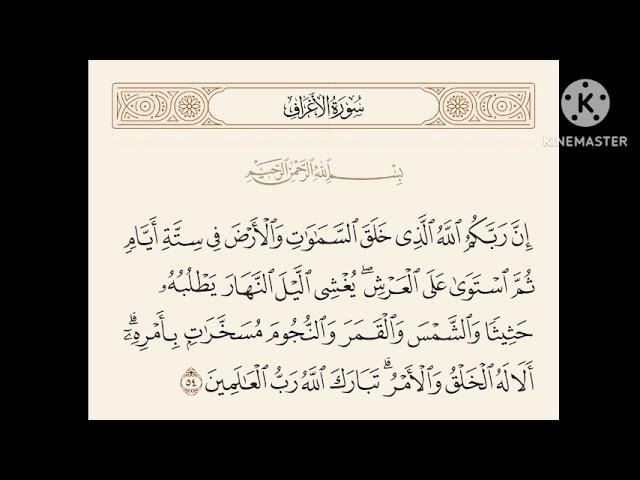 سُورَةُ الأَعْرَافِ
KINEMASTER
بِسْمِ اللَّهِ الرَّحْمَٰنِ الرَّحِيمِ
إِنَّ رَبَّكُمُ ٱللَّهُ ٱلَّذِى خَلَقَ ٱلسَّمَٰوَٰتِ وَٱلْأَرْضَ فِى سِتَّةِ أَيَّامٍ
ثُمَّ ٱسْتَوَىٰ عَلَى ٱلْعَرْشِۖ يُغْشِى ٱلَّيْلَ ٱلنَّهَارَ يَطْلُبُهُۥ
حَثِيثًا وَٱلشَّمْسَ وَٱلْقَمَرَ وَٱلنُّجُومَ مُسَخَّرَٰتٍۭ بِأَمْرِهِۦٓۗ
أَلَا لَهُ ٱلْخَلْقُ وَٱلْأَمْرُۗ تَبَارَكَ ٱللَّهُ رَبُّ ٱلْعَٰلَمِينَ ٥٤